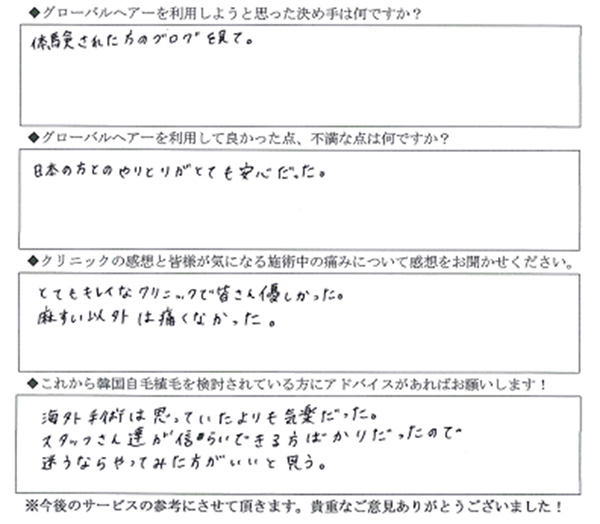 ◆グローバルヘアーを利用しようと思った決め手は何ですか？
体験された方のブログを見て。
◆グローバルヘアーを利用して良かった点、不満な点は何ですか？
日本の方とのやりとりがとても安心だった。
◆クリニックの感想と皆様が気になる施術中の痛みについて感想をお聞かせください。
とてもキレイなクリニックで皆さん優しかった。
麻すい以外は痛くなかった。
◆これから韓国自毛植毛を検討されている方にアドバイスがあればお願いします！
海外手術は思っていたよりも気楽だった。
スタッフさん達が信らいできる方ばかりだったので
迷うならやってみた方がいいと思う。
※今後のサービスの参考にさせて頂きます。貴重なご意見ありがとうございました！